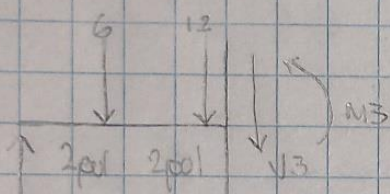 6 12
M3
2pol 2pol V3